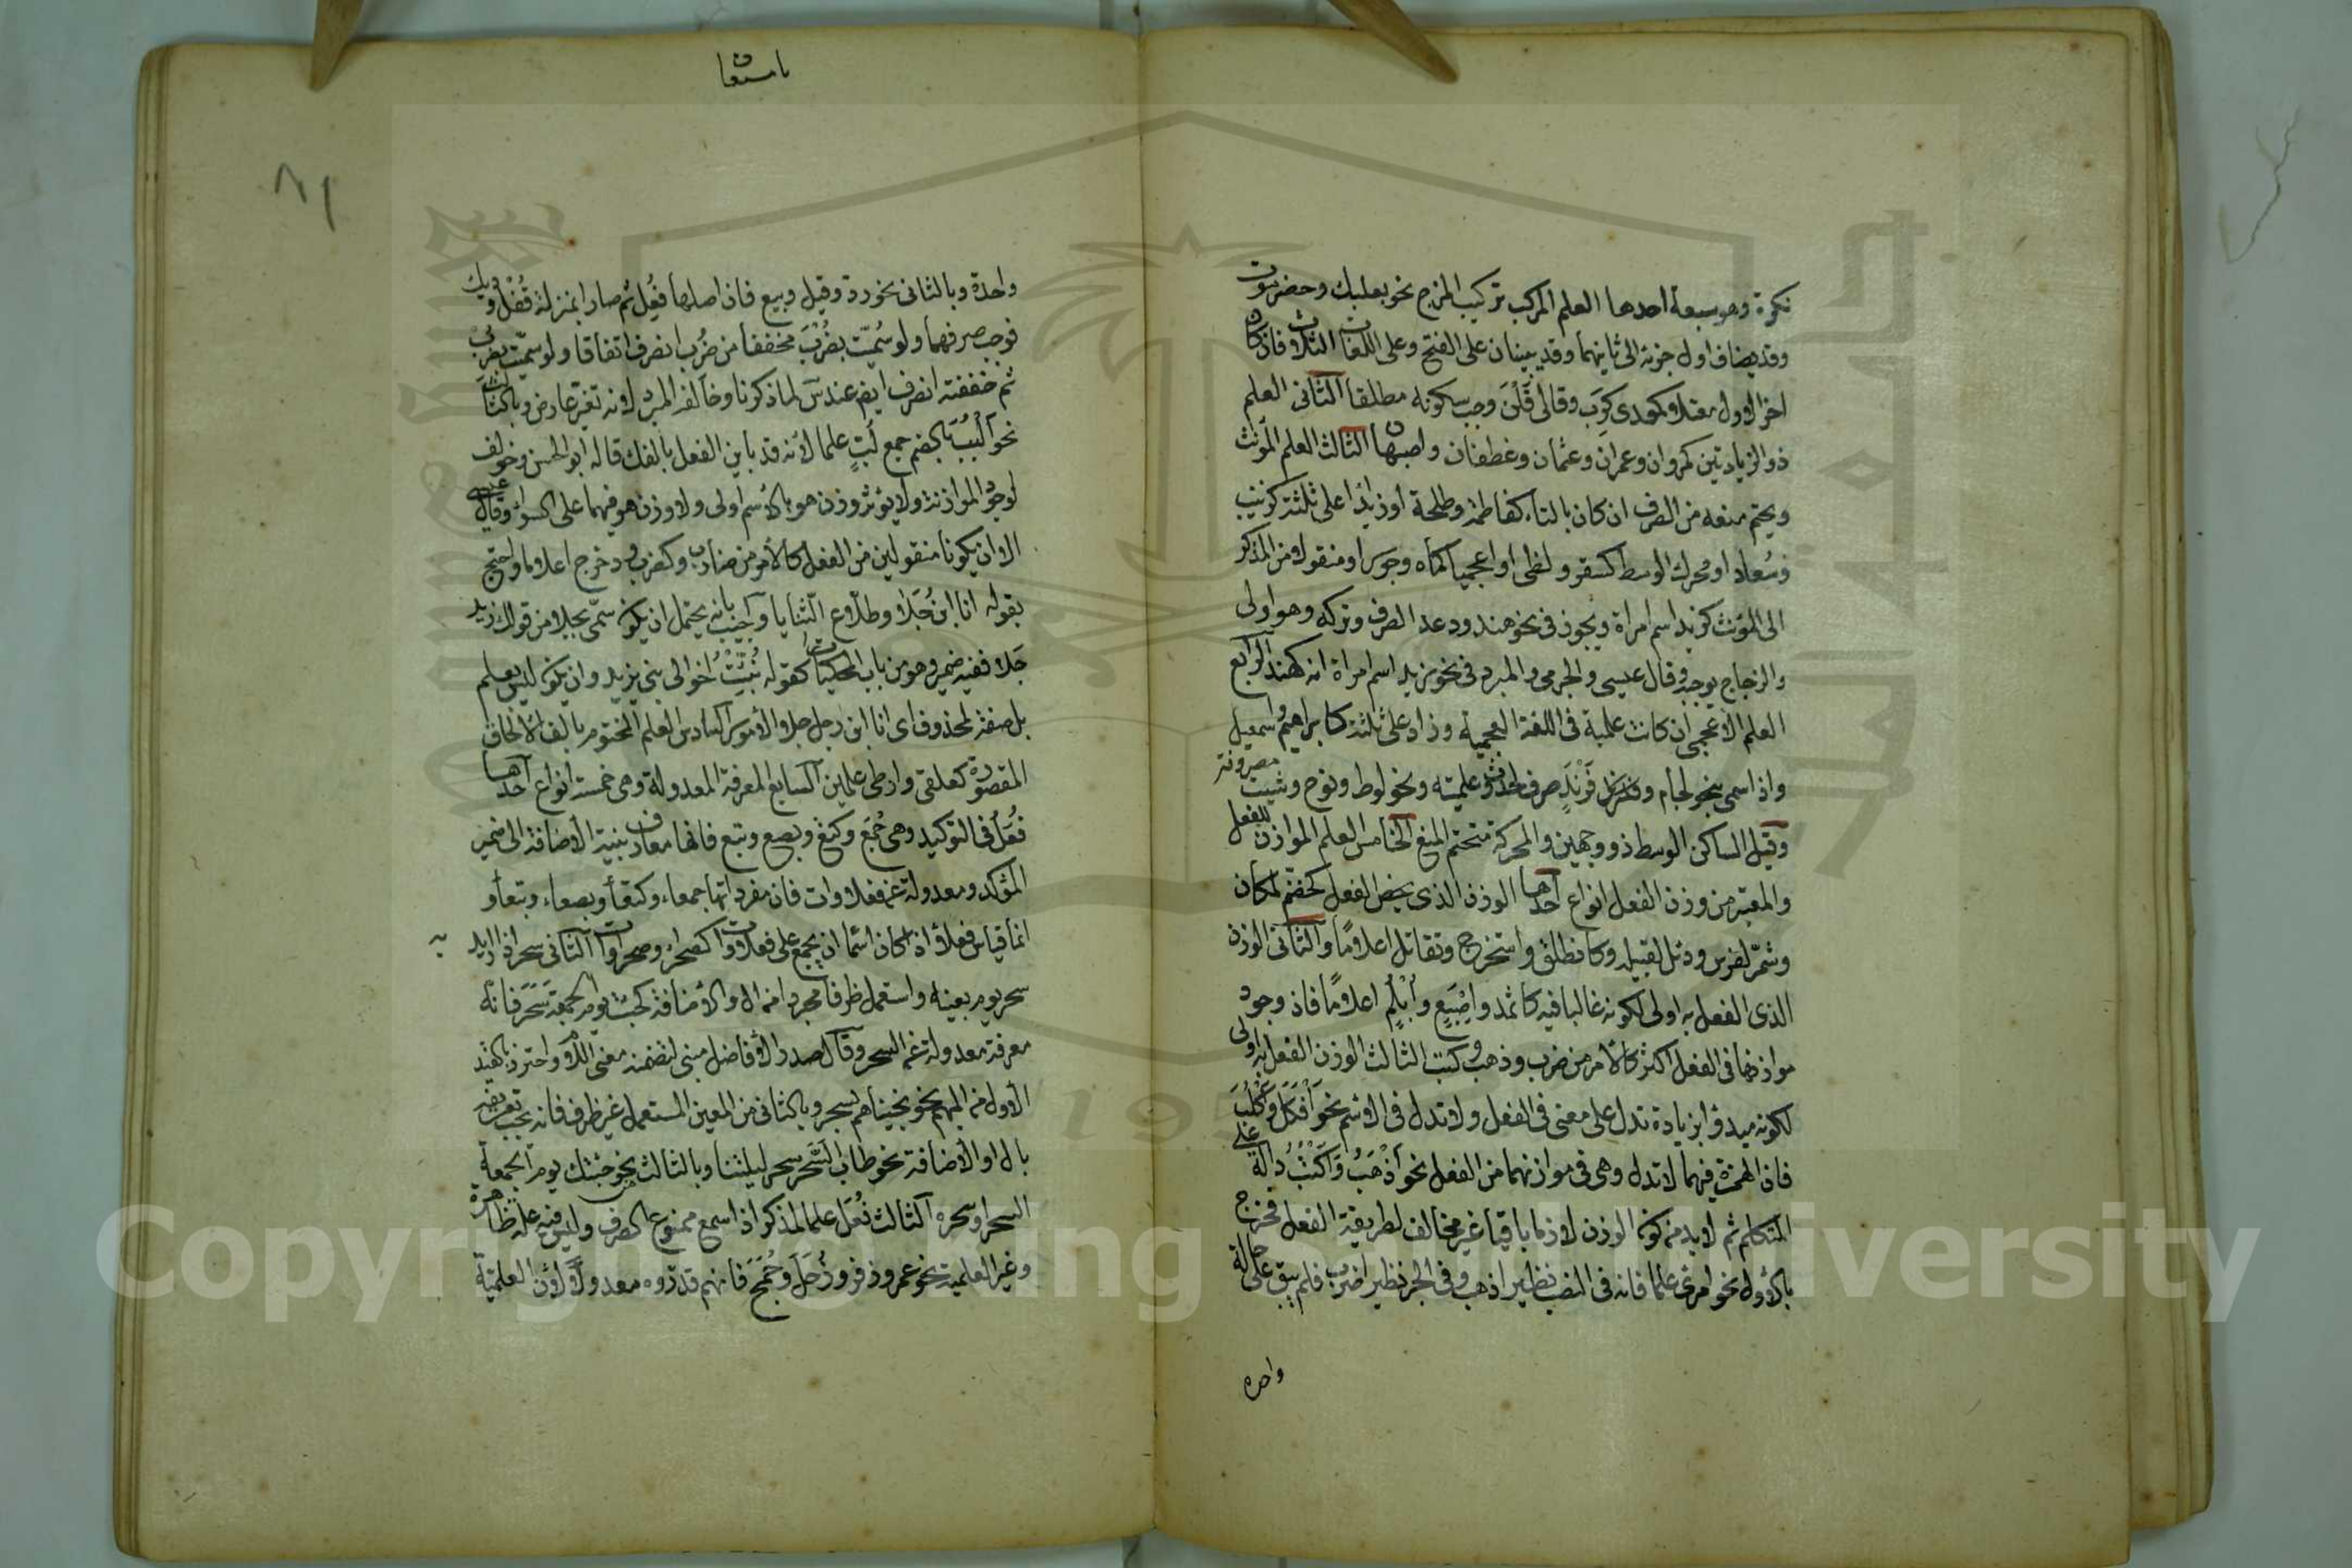 نكرة وهو سبعة احدها العلم المركب تركيب المزج نحو بعلبك وحضرموت
وقد يضاف اول جزئه الى ثانيهما وقد يبنيان على الفتح وعلى اللغات الثلاث فان كان
اخر الاول معتلا كمعدي كرب وقالى قلن وجب سكونه مطلقا الثانى العلم
ذو الزيادتين كمروان وعمران وعثمان وغطفان واصبهان الثالث العلم المؤنث
ويحتم منعه من الصرف ان كان بالتاء كفاطمة وطلحة او زايدا على ثلثة كزينب
وسعاد او محرك الوسط كسقر ولظى او اعجميا كماه وجور او منقولا من المذكر
الى المؤنث كزيد اسم امراة ويجوز فى نحو هند ودعد الصرف وتركه وهو اولى
والزجاج يوجبه وقال عيسى والجرمى والمبرد فى نحو زيد اسم امراة انه كهند الرابع
العلم الاعجمى ان كانت علمية فى اللغة العجمية وزاد على ثلثة كابراهيم واسمعيل
واذا سمى بنحو لجام وفرند صرف لحدوث علميته ونحو لوط ونوح وشيت مصروفة
وقيل الساكن الوسط ذو وجهين والمحركة متحتم المنع الخامس العلم الموازن للفعل
والمعتبر من وزن الفعل انواع احدها الوزن الذى يخص الفعل كخضم لمكان
وشمر لفرس ودئل لقبيلة وكانطلق واستخرج وتقاتل اعلاما والثانى الوزن
الذى الفعل به اولى لكونه غالبا فيه كاثمد واصبع وابلم اعلاما فان وجود
موازنها فى الفعل اكثر كالامر من ضرب وذهب وكتب الثالث الوزن الفعل به اولى
لكونه مبدوا بزيادة تدل على معنى فى الفعل ولا تدل فى الاسم نحو افكل واكلب
فان الهمزة فيهما لا تدل وهى فى موازنهما من الفعل نحو اذهب واكتب دالة على
المتكلم ثم لا بد من كون الوزن لازما باقيا غير مخالف لطريقة الفعل فخرج
بالاول نحو امرئ علما فانه فى النصب نظير اذهب وفى الجر نظير اضرب فلم يبق على حالة
واحدة
ماستعا
٨١
واحدة وبالثانى نحو رد وقيل وبيع فان اصلها فعل ثم صارا بمنزلة قفل وديك
فوجب صرفهما ولو سميت بضرب مخففا من ضرب انصرف اتفاقا ولو سميت بضرب
ثم خففته انصرف ايضا عند س لما ذكرنا وخالف المبرد لانه تغير عارض وبالثالث
نحو البب بالضم جمع لب علما لانه قد باين الفعل بالفك قاله ابو الحسن وخولف
لوجود الموازنة ولا يؤثر وزن هو بالاسم اولى ولا وزن هو فيهما على السواء وقال عيسى
الا ان يكونا منقولين من الفعل كالامر من ضارب وكضرب ودحرج اعلاما واحتج
بقوله انا ابن جلا وطلاع الثنايا واجيب بانه يحتمل ان يكون سمى بجلا من قولك زيد
جلا ففيه ضمير وهو من باب الحكيات كقوله نبئت اخوالى بنى يزيد وان يكون ليس بعلم
بل صفة لمحذوف اى انا ابن رجل جلا الامور السادس العلم المختوم بالف الالحاق
المقصورة كعلقى وارطى علمين السابع المعرفة المعدولة وهى خمسة انواع احدها
فعل فى التوكيد وهى جمع وكتع وبصع وبتع فانها معارف بنية الاضافة الى ضمير
المؤكد ومعدولة عن فعلاوات فان مفرداتها جمعاء وكتعاء وبصعاء وبتعاء و
انما قياس فعلاء اذا كان اسما ان يجمع على فعلاوات كصحراء وصحراوات الثانى سحر اذا اريد به
سحر يوم بعينه واستعمل ظرفا مجردا من ال والاضافة كجئت يوم الجمعة سحر فانه
معرفة معدولة عن السحر وقال صدر الافاضل مبنى لتضمنه معنى اللام واحترز بالقيد
الاول من المبهم نحو نجيناهم بسحر وبالثانى من المعين المستعمل غير ظرف فانه يجب تعريفه
بال او الاضافة نحو طاب السحر سحر ليلتنا وبالثالث نحو جئتك يوم الجمعة
السحر او سحره الثالث فعل علما لمذكر اذا سمع ممنوع الصرف وليس فيه علة ظاهرة
وغير العلمية نحو عمر وزفر وزحل وجمح فانهم قدروه معدولا لان العلمية